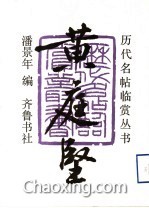 历代名帖临赏丛书
黄庭坚
潘景年 编 齐鲁书社
Chaoxing.com